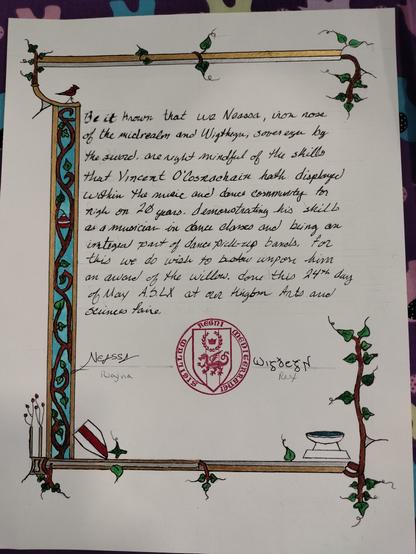 Be it known that we Neassa, iron rose
of the midrealm and Wigthegn, sovereign by
the sword, are right mindful of the skills
that Vincent O'Cosnachain hath displayed
within the music and dance community for
nigh on 20 years. demonstrating his skills
as a musician in dance classes and being an
integral part of dance pick-up bands. For
this we do wish to bestow unpon him
an award of the willow. done this 24th day
of May A.S.LX at our Kingdom Arts and
Sciences faire.
Neassa
Regina
Rex
SIGILLUM REGNI MEDITERRANEI